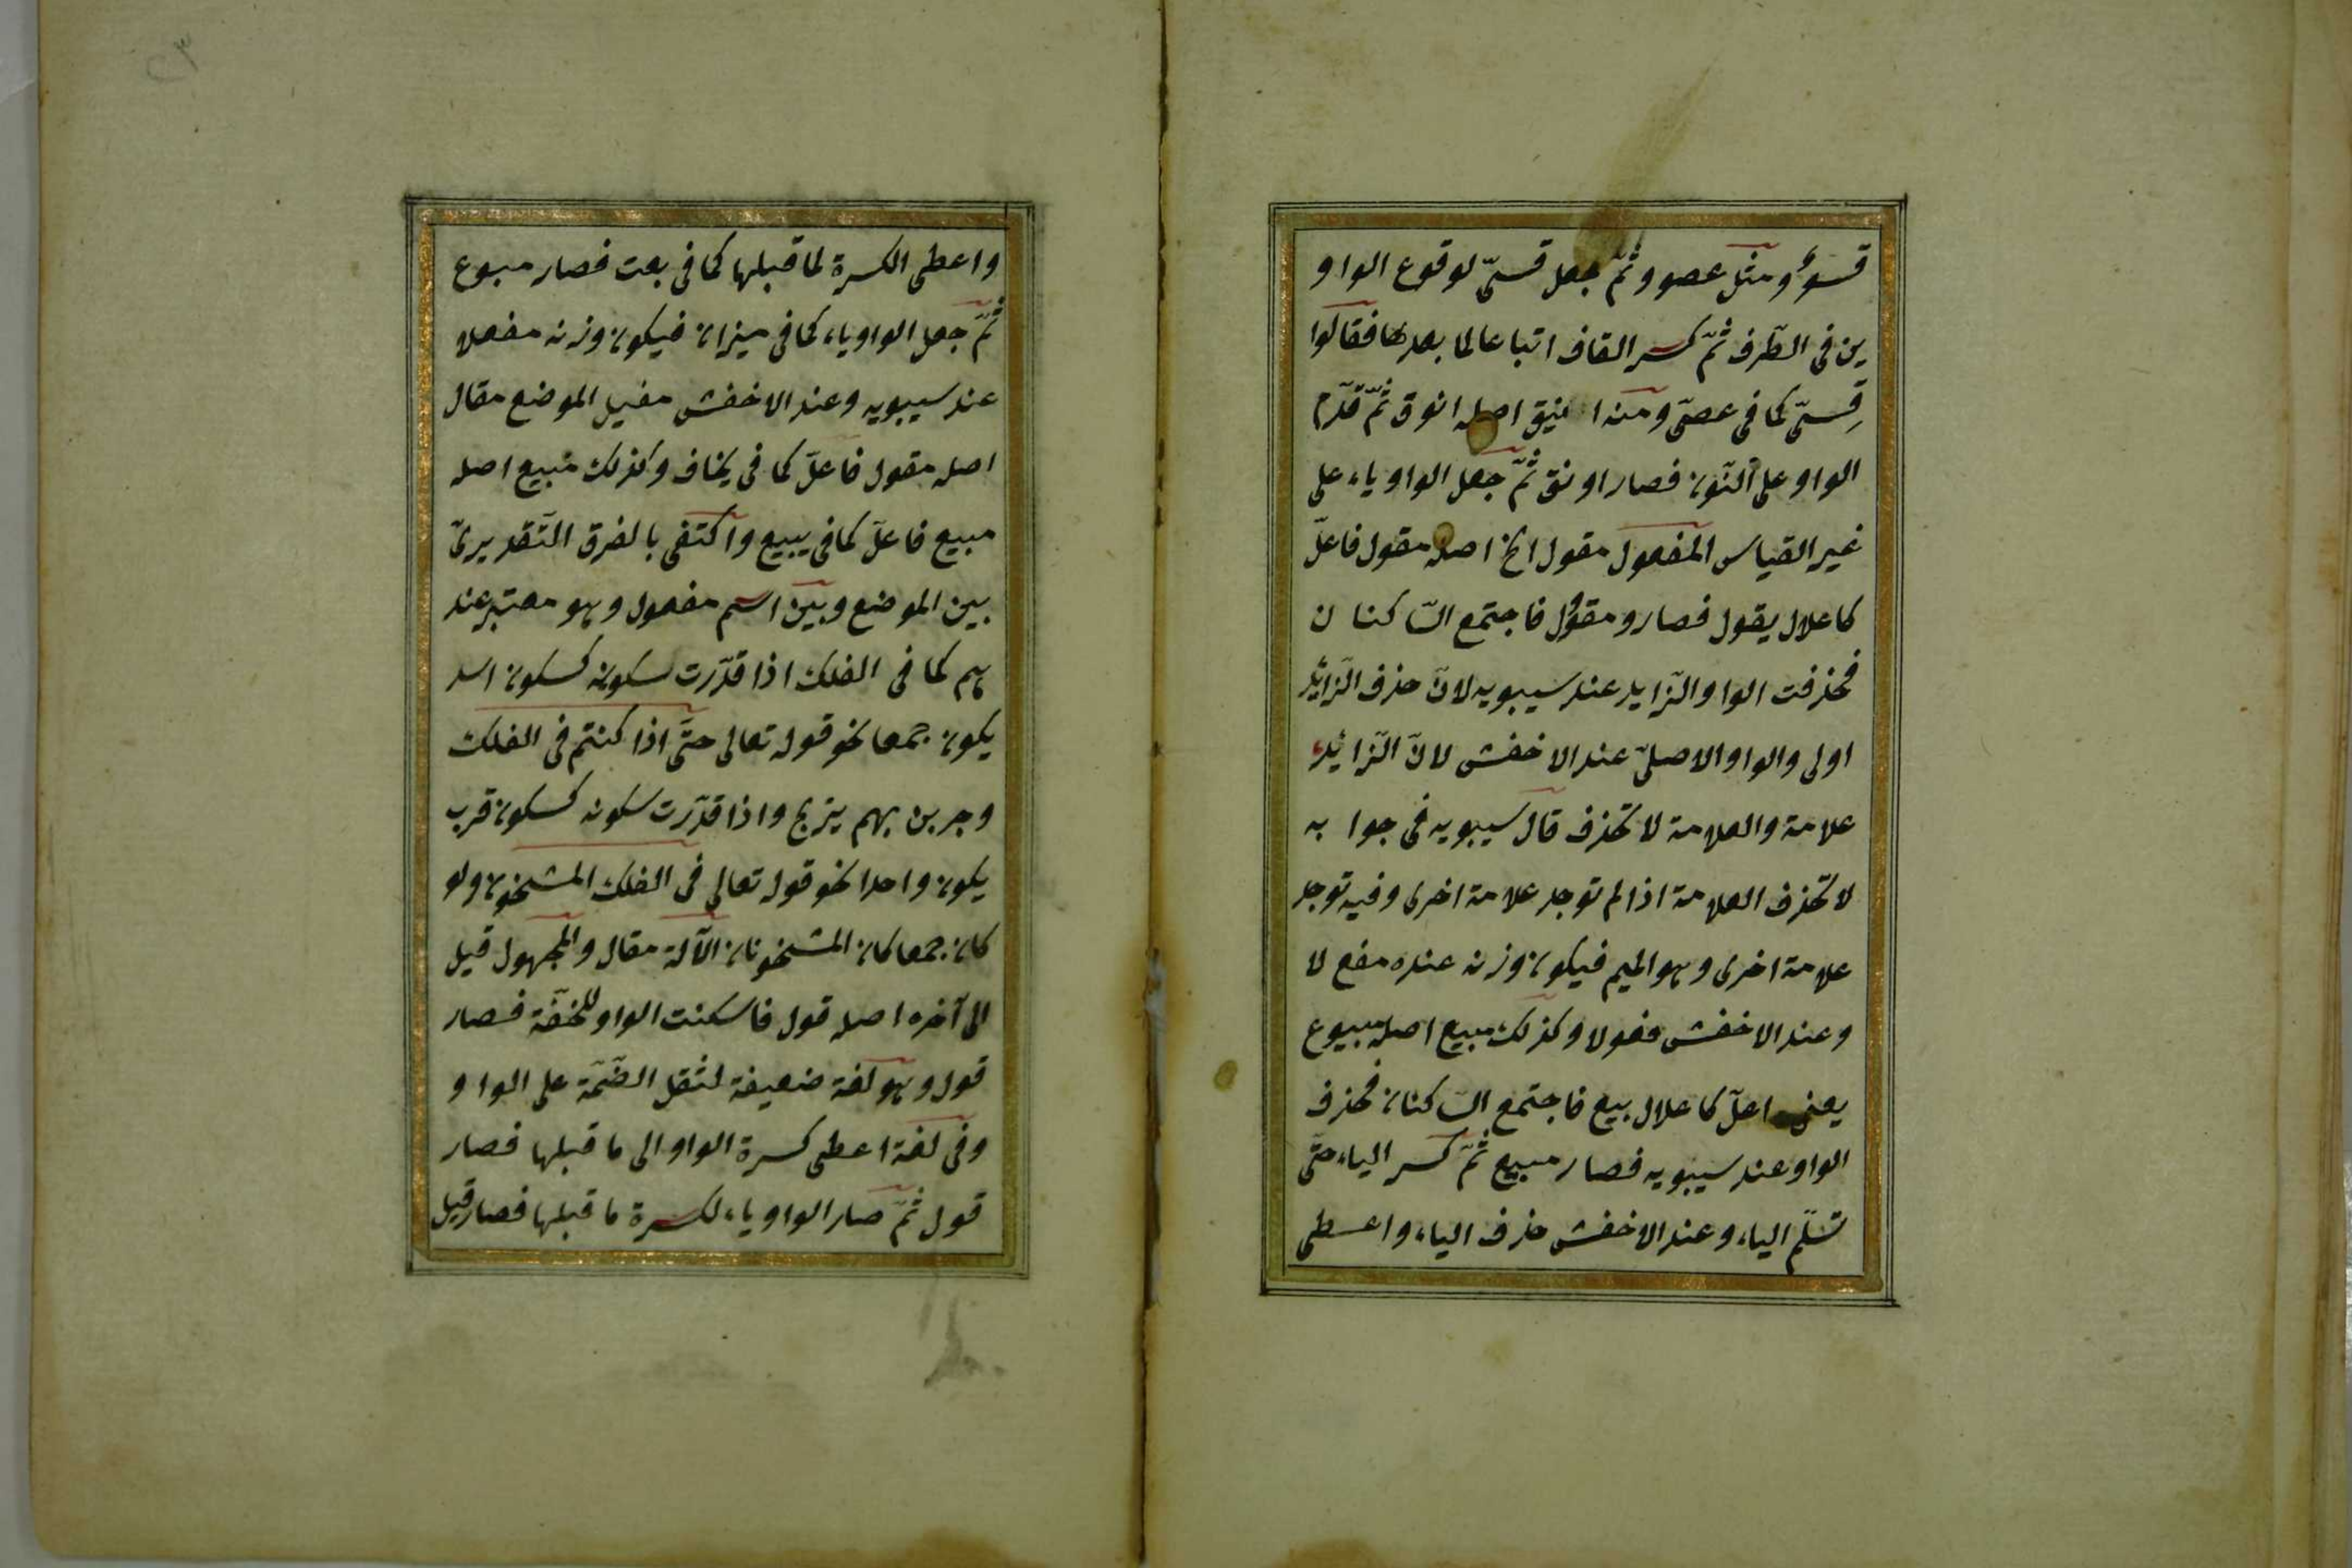 قسوو مثل عصوو ثمّ جعل قسىّ لوقوع الواو
ين فى الطّرف ثمّ كسر القاف اتباعا لما بعدها فقالوا
قِسىّ كما فى عصىّ ومنه اينق اصله انوق ثمّ قدّم
الواو على النّون فصار اونق ثمّ جعل الواو ياء على
غير القياس المفعول مقول الخ اصله مقوول فاعلّ
كاعلال يقول فصار ومقوول فاجتمع السّاكنان
فحذفت الواو الزّايد عند سيبويه لانّ حذف الزّائد
اولى والواو الاصلىّ عند الاخفش لانّ الزّائد
علامة والعلامة لا تحذف قال سيبويه فى جوابه
لا تحذف العلامة اذا لم توجد علامة اخرى وفيه توجد
علامة اخرى وهو الميم فيكون وزنه عنده مفعلا
وعند الاخفش مفولا وكذلك مبيع اصله مبيوع
يعنى اعلّ كاعلال بيع فاجتمع السّاكنان فحذف
الواو عند سيبويه فصار مبيع ثمّ كسر الياء حتّى
تسلّم الياء وعند الاخفش حذف الياء واعطى
واعطى الكسرة لما قبلها كما فى بعت فصار مبوع
ثمّ جعل الواو ياء كما فى ميزان فيكون وزنه مفعلا
عند سيبويه وعند الاخفش مفيل الموضع مقال
اصله مقول فاعلّ كما فى يخاف وكذلك مبيع اصله
مبيع فاعلّ كما فى يبيع واكتفى بالفرق التّقديرىّ
بين الموضع وبين اسم مفعول وهو معتبر عند
هم كما فى الفلك اذا قدّرت سكونه كسكون اسد
يكون جمعا نحو قوله تعالى حتّى اذا كنتم فى الفلك
وجرين بهم يتزج واذا قدّرت سكونه كسكون قرب
يكون واحدا نحو قوله تعالى فى الفلك المشحون ولو
كان جمعا كان المشحونان الآلة مقال والمجهول قيل
الى آخره اصله قول فاسكنت الواو للخفّة فصار
قول وهو لغة ضعيفة لثقل الضّمّة على الواو
وفى لغة اعطى كسرة الواو الى ما قبلها فصار
قول ثمّ صار الواو ياء لكسرة ما قبلها فصار قيل